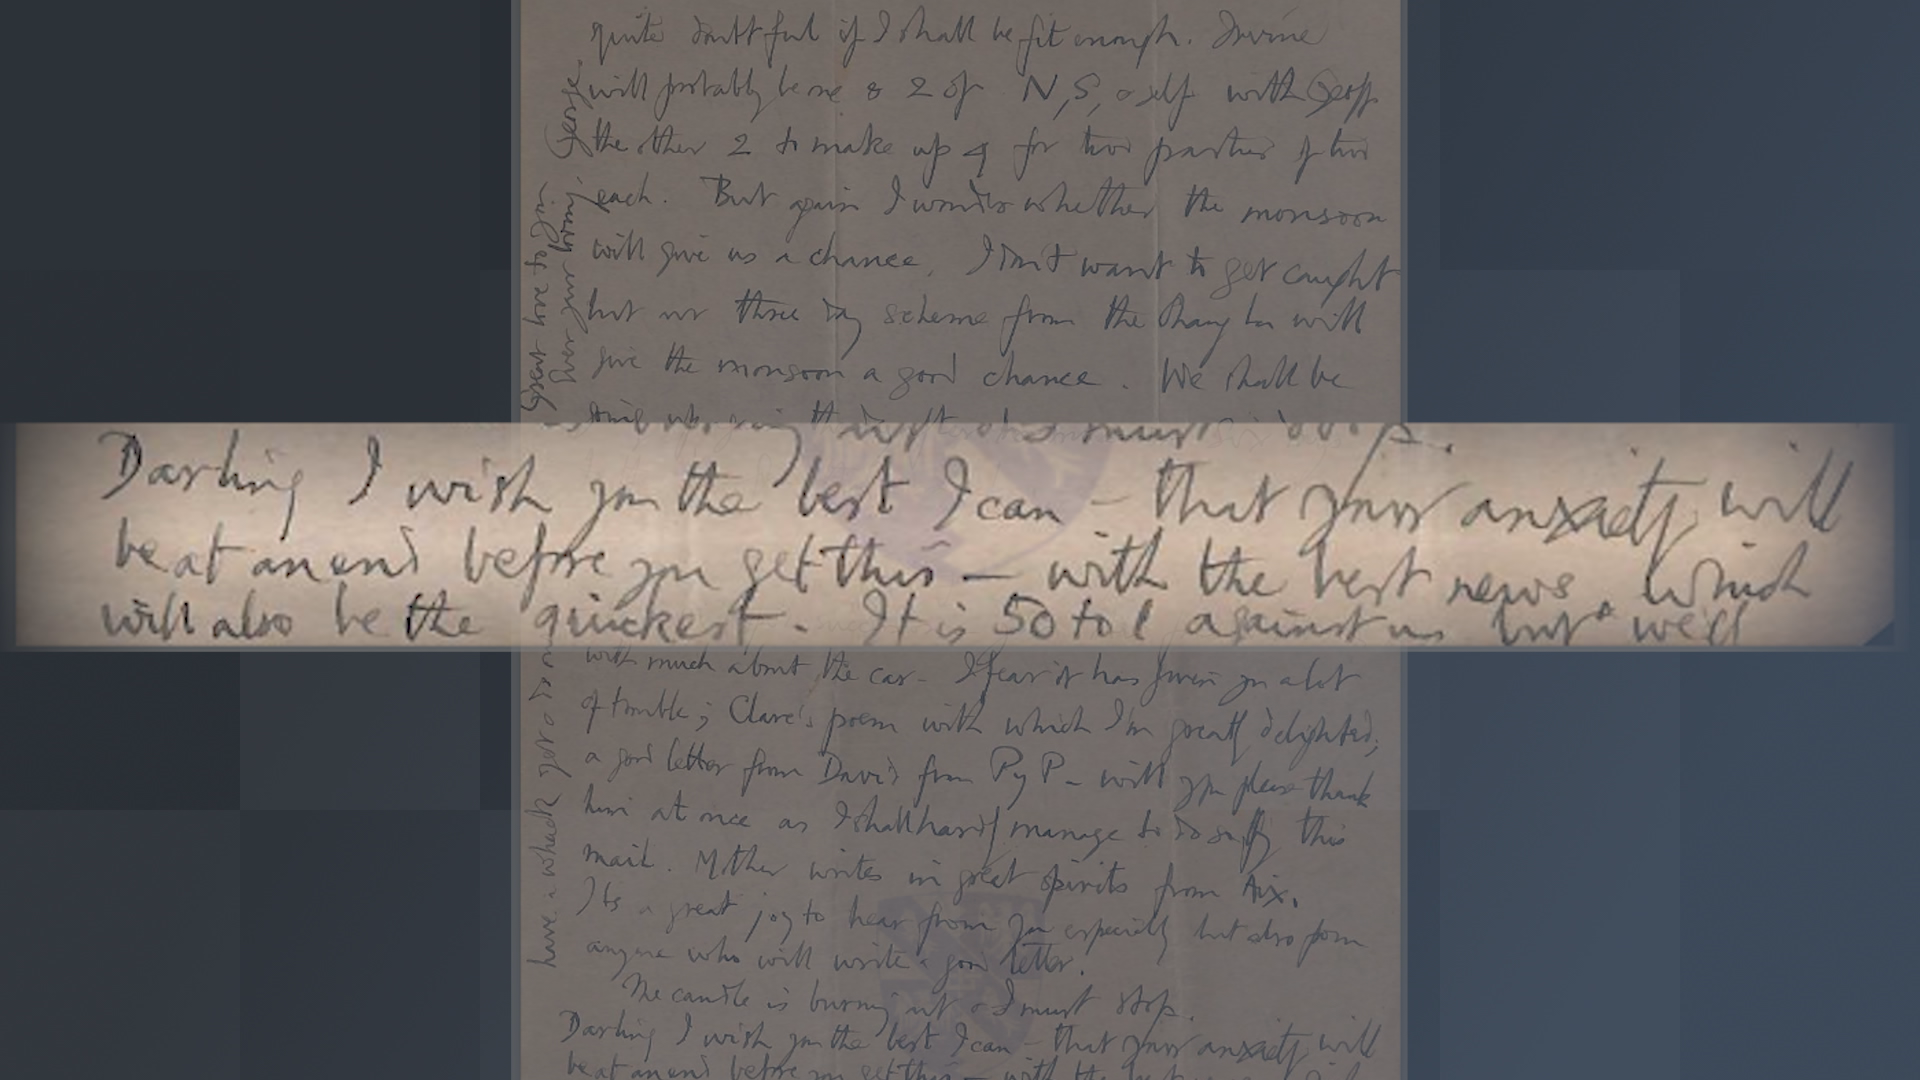 quite doubtful if I shall be fit enough. Irvine
will probably be one & 2 of N, S, & self with Geoff
the other 2 to make up 4 for two parties of two
each. But again I wonder whether the monsoon
will give us a chance. I don't want to get caught
but our three day scheme from the Chang La will
give the monsoon a good chance. We shall be
going up again the
Great love to you
Ever your loving
George
out & I must stop.
Darling I wish you the best I can – that your anxiety will
be at an end before you get this – with the best news. Which
will also be the quickest. It is 50 to 1 against us but we'll
with much about the car – I fear it has given you a lot
of trouble; Clare's poem with which I'm greatly delighted;
a good letter from David from Py P – will you please thank
him at once as I shall hardly manage to do so by this
mail. Mother writes in great spirits from Aix.
It's a great joy to hear from you especially but also from
anyone who will write a good letter.
The candle is burning out & I must stop.
Darling I wish you the best I can – that your anxiety will
be at an end before you get this – with the best
have a whack yet & do